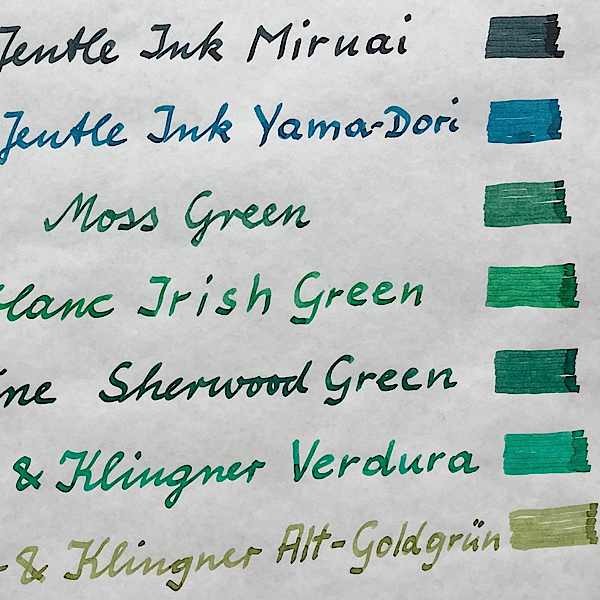 Jentle Ink Miruai
Jentle Ink Yama-Dori
Moss Green
blanc Irish Green
ine Sherwood Green
& Klingner Verdura
- & Klingner Alt-Goldgrün